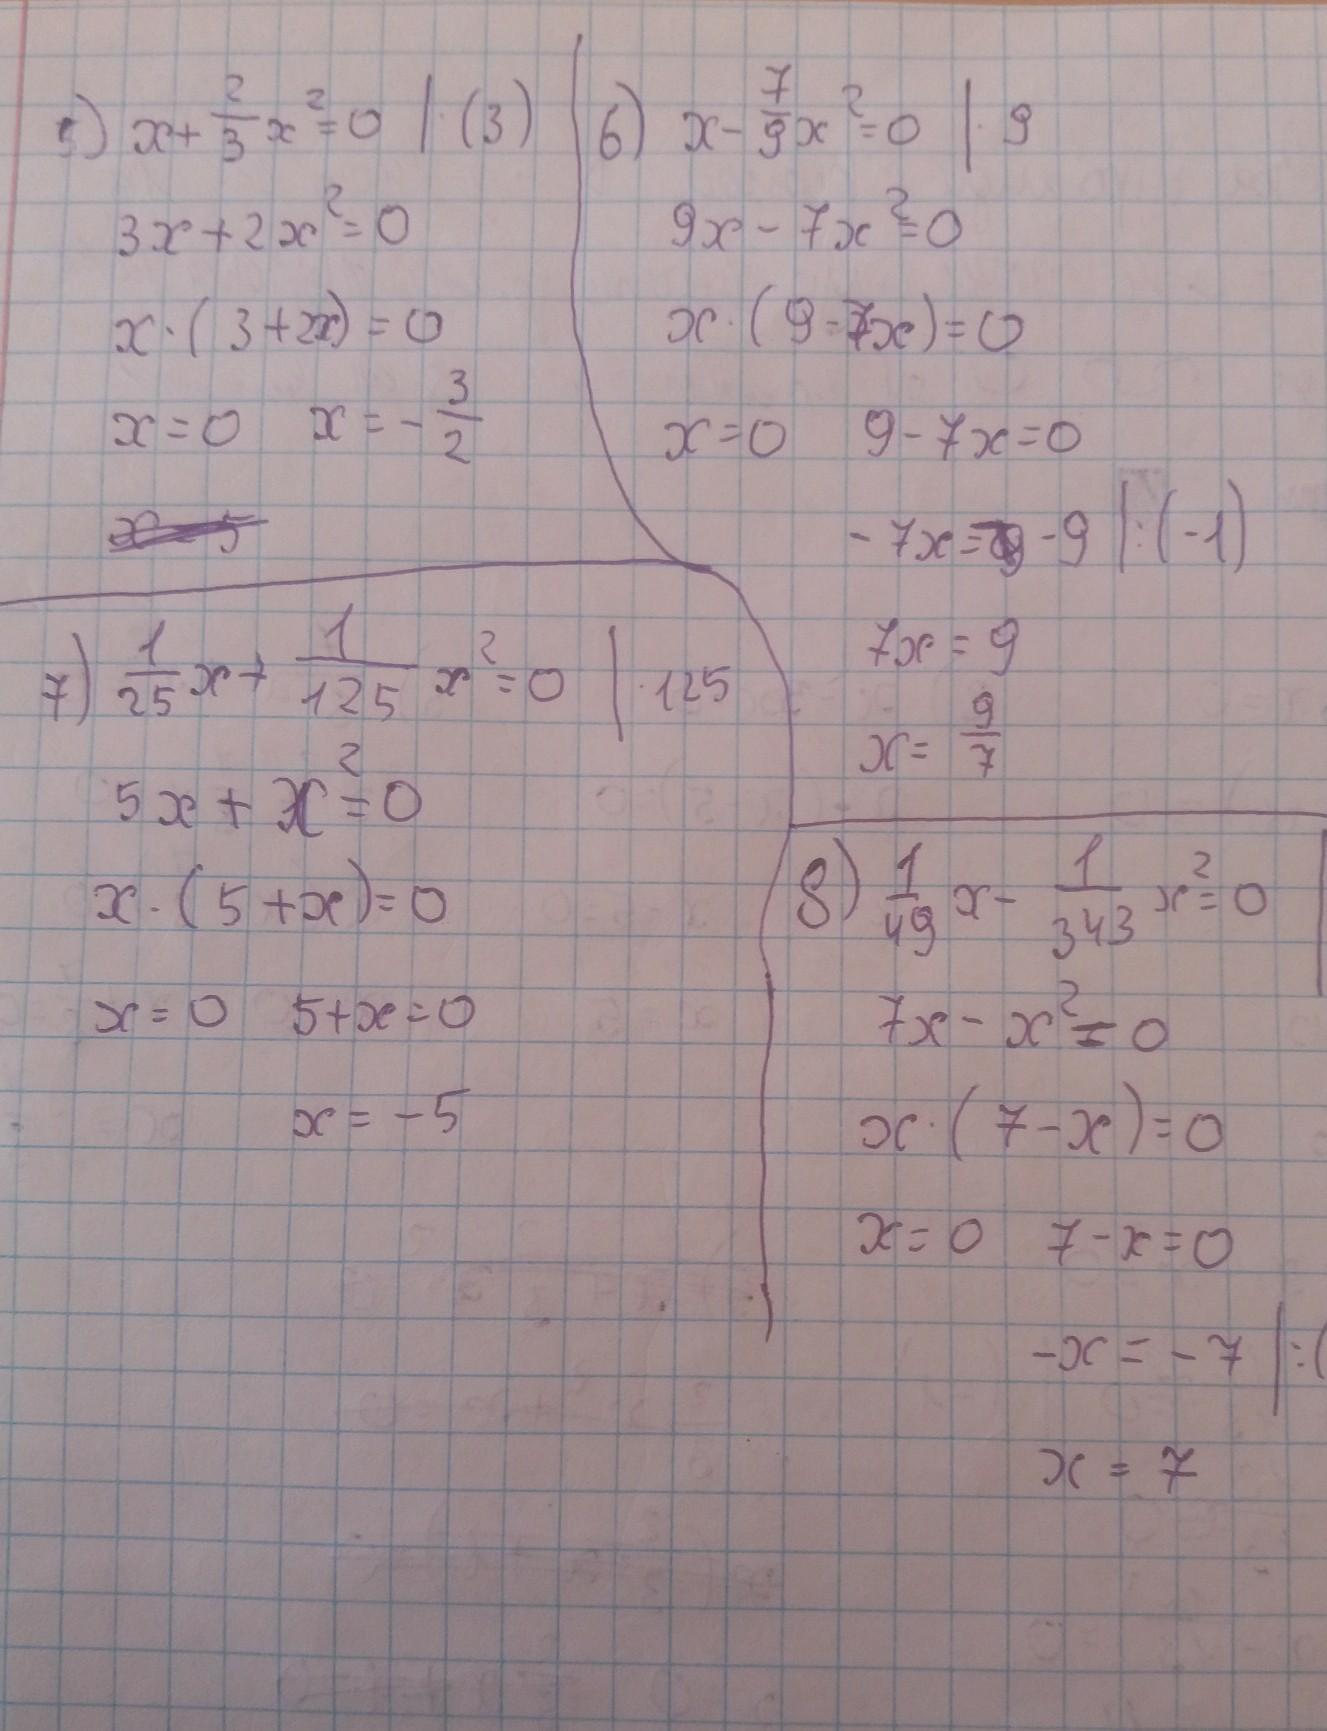 5) x + 2/3 x² = 0 | · (3)
3x + 2x² = 0
x · (3 + 2x) = 0
x = 0 x = - 3/2
6) x - 7/9 x² = 0 | · 9
9x - 7x² = 0
x · (9 - 7x) = 0
x = 0 9 - 7x = 0
- 7x = - 9 | : (-1)
7x = 9
x = 9/7
7) 1/25 x + 1/125 x² = 0 | · 125
5x + x² = 0
x · (5 + x) = 0
x = 0 5 + x = 0
x = - 5
8) 1/49 x - 1/343 x² = 0 |
7x - x² = 0
x · (7 - x) = 0
x = 0 7 - x = 0
-x = - 7 | : (
x = 7